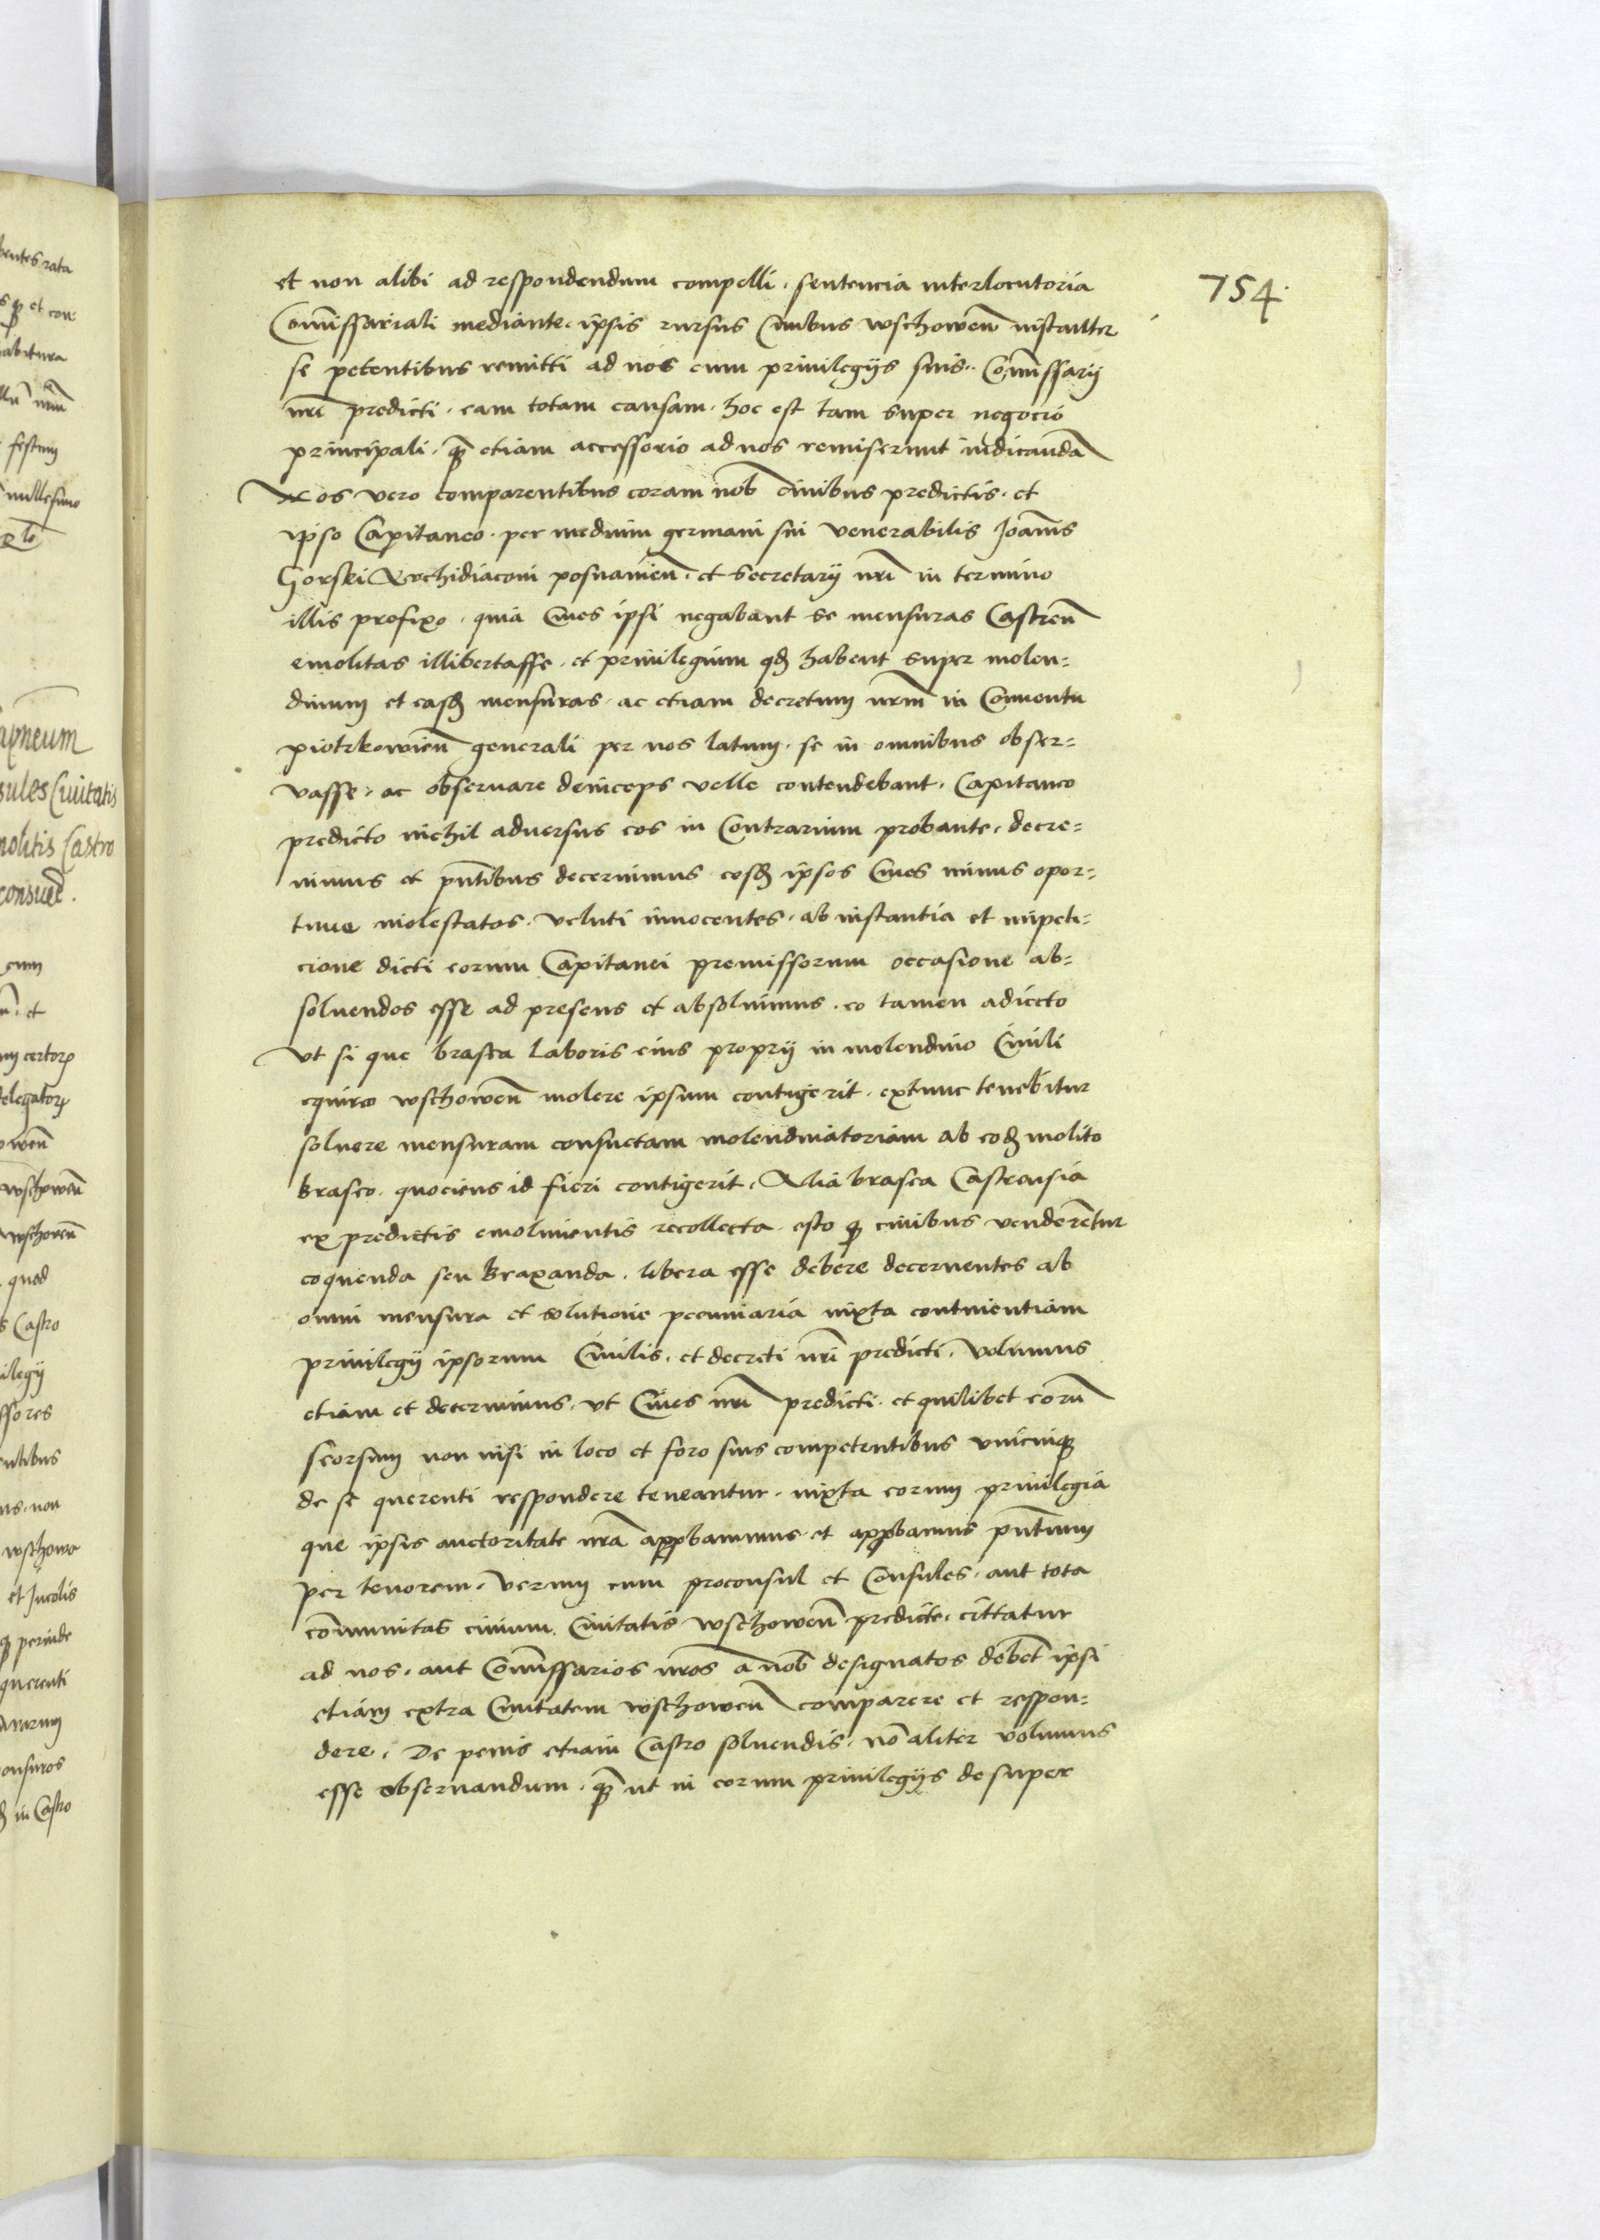 754.
et non alibi ad respondendum compelli, sentencia interlocutoria
Com̃issariali mediante, ipsis rursus Ciuibus wschoweñ instanter
se petentibus remitti ad nos cum priuilegijs suis. Com̃issarij
nr̃i predicti, eam totam causam, hoc est tam super negocio
principali, q̃ etiam accessorio ad nos remiserunt iudicandã
Nos vero comparentibus coram nob̃ ciuibus predictis, et
ipso Capitaneo, per medium germani sui venerabilis Joannis
Gorski Archidiaconi posnanieñ, et Secretarij nr̃i in termino
illis prefixo, quia Ciues ipsi negabant se mensuras Castreñ
emolitas illibertasse, et priuilegium qđ habent super molen=
dinum et easđ mensuras, ac etiam decretum nr̃m in Conuentu
piotrkowieñ generali per nos latum, se in omnibus obser=
vasse, ac obseruare deinceps velle contendebant, Capitaneo
predicto nichil aduersus eos in Contrarium probante, decre=
uimus et pñtibus decernimus eosđ ipsos Ciues minus opor=
tune molestatos, veluti innocentes, ab instantia et impeti=
cione dicti eorum Capitanei premissorum occasione ab=
soluendos esse ad presens et absoluimus, eo tamen adiecto
Vt si que brasea laboris eius proprij in molendino Ciuili
equireo wschoweñ molere ipsum contigerit, extunc tenebitur
soluere mensuram consuetam molendinatoriam ab eođ molito
braseo, quociens id fieri contigerit, Alia brasea Castrensia
ex predictis emolimentis recollecta, esto q̃ ciuibus venderentur
coquenda seu braxanda, libera esse debere decernentes ab
omni mensura et solutione pecuniaria iuxta continentiam
priuilegij ipsorum Ciuilis, et decreti nr̃i predicti, Volumus
etiam et decernimus, vt Ciues nr̃i predicti, et quilibet eorũ
seorsum non nisi in loco et foro suis competentibus vnicuiq̃
de se querenti respondere teneantur, iuxta eorum priuilegia
que ipsis auctoritate nr̃a approbauimus et approbamus pñtium
per tenorem, Verum cum proconsul et Consules, aut tota
com̃unitas ciuium Ciuitatis wschoweñ predicte, cittatur
ad nos, aut Com̃issarios nr̃os a nob̃ designatos deb̃et ipsi
etiam extra Ciuitatem wschoweñ comparere et respon=
dere, De penis etiam Castro soluendis, nõ aliter volumus
esse obseruandum, q̃ ut in eorum priuilegijs desuper